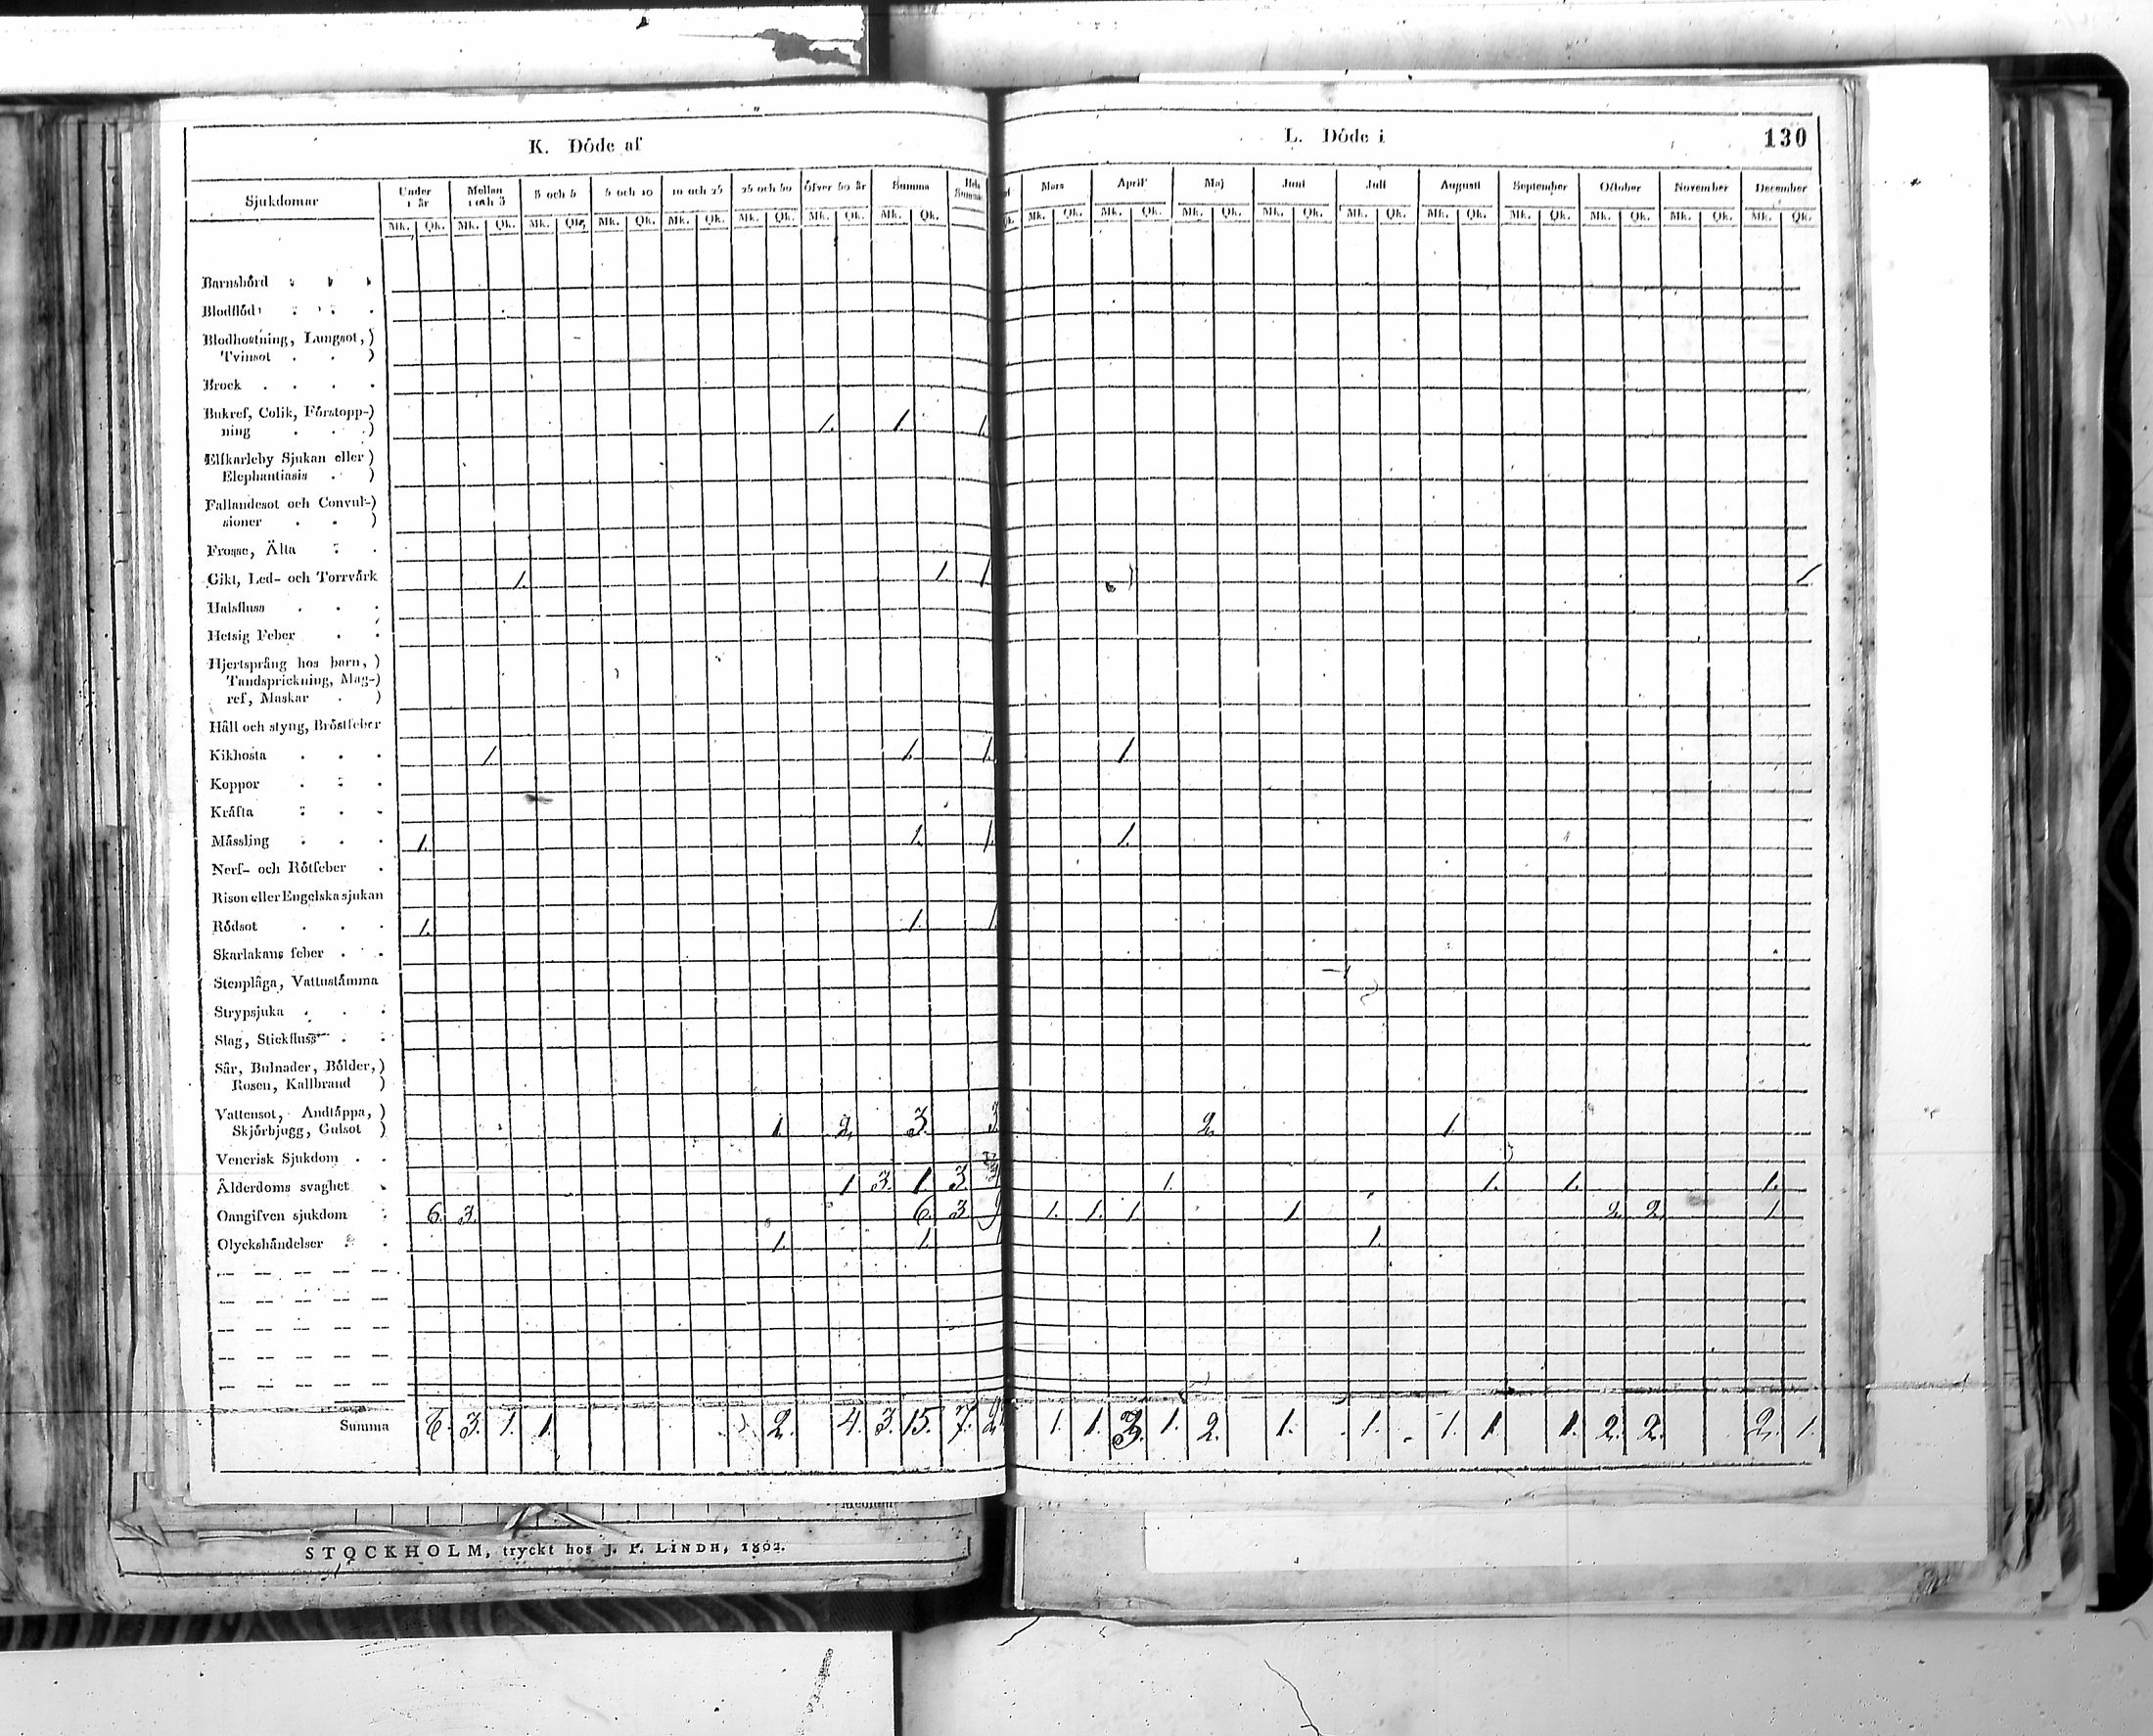 K. Döde af
L. Döde i
130
Sjukdomar
Under 1 år
Mellan 1 och 3
3 och 5
5 och 10
10 och 25
25 och 50
öfver 50 år
Summa
Hela Summan
Mars
April
Maj
Junii
Julii
Augusti
September
October
November
December
Mk. Qk. Mk. Qk. Mk. Qk. Mk. Qk. Mk. Qk. Mk. Qk. Mk. Qk. Mk. Qk.
Qk. Mk. Qk. Mk. Qk. Mk. Qk. Mk. Qk. Mk. Qk. Mk. Qk. Mk. Qk. Mk. Qk. Mk. Qk. Mk. Qk.
Barnsbörd
Blodflöd
Blodhostning, Lungsot,)
Tvinsot )
Brock
Bukref, Colik, Förstopp-)
ning ) 1. 1. 1.
Elfkarleby Sjukan eller )
Elephantiasis )
Fallandesot och Convul-)
sioner )
Frosse, Älta
Gikt, Led- och Torrvärk 1. 1 1 1
Halsfluss
Hetsig Feber
Hjertsprång hos barn, )
Tandsprickning, Mag-)
ref, Maskar )
Håll och styng, Bröstfeber
Kikhosta 1. 1. 1. 1.
Koppor
Kräfta
Mässling 1. 1. 1. 1.
Nerf- och Rötfeber
Rison eller Engelska sjukan
Rödsot 1. 1. 1.
Skarlakans feber
Stenplåga, Vattustämma
Strypsjuka
Slag, Stickfluss
Sår, Bulnader, Bölder,)
Rosen, Kallbrand )
Vattensot, Andtäppa, )
Skjörbjugg, Gulsot ) 1. 2. 3. 3 2. 1.
Venerisk Sjukdom
Ålderdoms svaghet 1 3. 1 3. 1. 1. 1. 1.
Oangifven sjukdom 6. 3. 6. 3. 9 1. 1. 1. 1. 2. 2. 1.
Olyckshändelser 1. 1. 1 1.
Summa 6. 3. 1. 1. 2. 4. 3. 15. 7. 1. 1. 3. 1. 2. 1. 1. 1. 1. 1. 2. 2. 2. 1.
STOCKHOLM, tryckt hos J. P. LINDH, 1802.